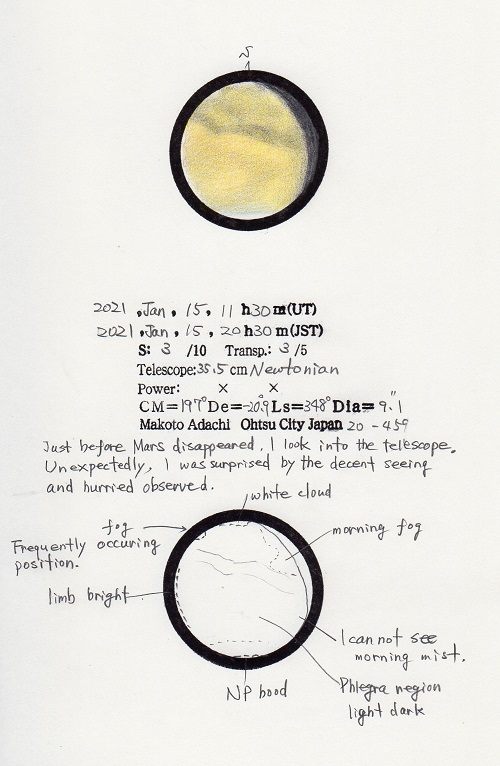 S
2021 , Jan , 15 , 11 h30m(UT)
2021 , Jan , 15 , 20h30m(JST)
S: 3 /10 Transp.: 3 /5
Telescope:35.5cm Newtonian
Power: × ×
CM=197°De=-20.9°Ls=348°Dia=9.1"
Makoto Adachi Ohtsu City Japan 20 - 459
Just before Mars disappeared, I look into the telescope.
Unexpectedly, I was surprised by the decent seeing
and hurried observed.
white cloud
fog
Frequently occuring
position.
morning fog
limb bright
I can not see
morning mist.
Phlegra region
light dark
NP hood